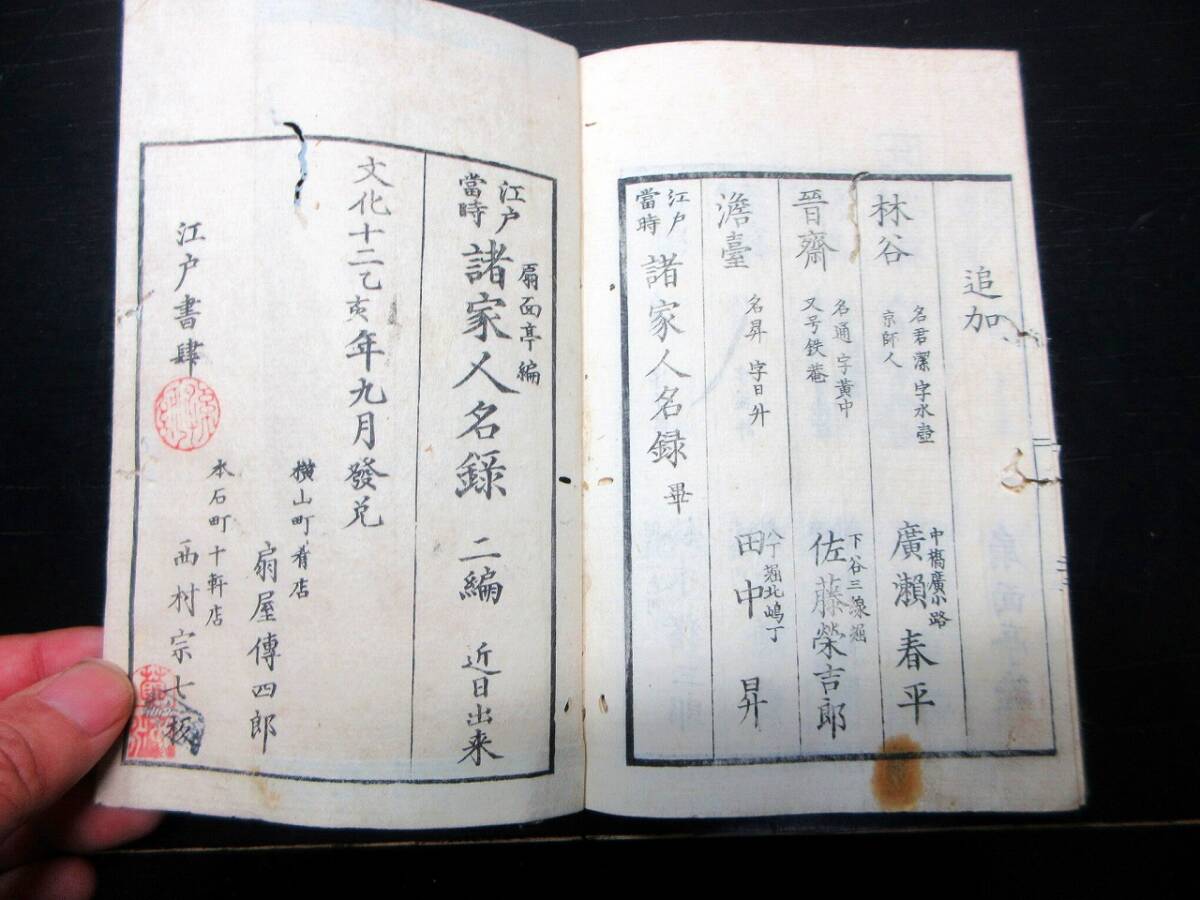 追加
林谷
名君潔 字水壺
京師人
中橋廣小路
廣瀬春平
晉齋
名通 字黄中
又号鉄菴
下谷三線堀
佐藤榮吉郎
澹臺
名昇 字日升
八丁堀北嶋丁
田中昇
江戸
當時
諸家人名録 畢
扇面亭編
江戸
當時
諸家人名録 二編 近日出来
文化十二乙亥年九月發兌
横山町肴店
扇屋傳四郎
江戸書肆
本石町十軒店
西村宗七板